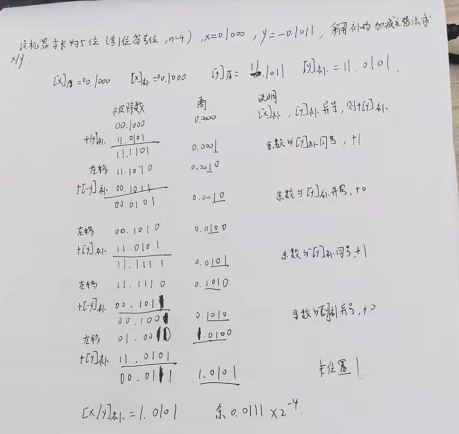 设机器字长为5位(含1位符号位, n=4), x=0.1000, y=-0.1011, 采用补码加减交替法求
x/y.
[x]原=0.1000 [x]补=0.1000 [y]原=1.1011 [y]补=11.0101.
被除数 商 说明
00.1000 0.0000 [x]补, [y]补异号, 则+[y]补
+[y]补 11.0101
11.1101 0.0001 余数与[y]补同号, +1
左移 11.1010 0.0010
+[-y]补 00.1011
00.0101 0.0010 余数与[y]补异号, +0
左移 00.1010 0.0100
+[y]补 11.0101
11.1111 0.0101 余数与[y]补同号, +1
左移 11.1110 0.1010
+[-y]补 00.1011
00.1001 0.1010 余数与[y]补异号, +0
左移 01.0010 1.0100
+[y]补 11.0101
00.0111 1.0101 末位置1
[x/y]补=1.0101 余0.0111×2⁻⁴